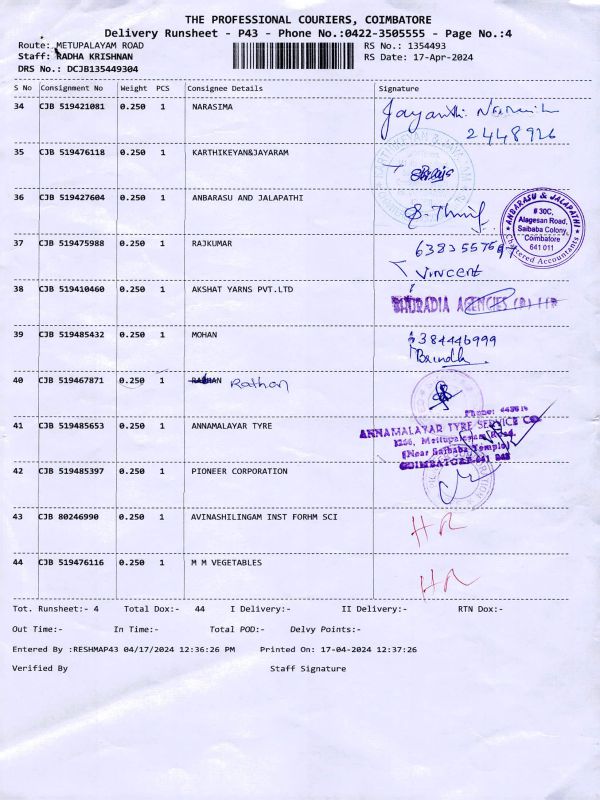 THE PROFESSIONAL COURIERS, COIMBATORE
Delivery Runsheet - P43 - Phone No.:0422-3505555 - Page No.:4
Route: METUPALAYAM ROAD RS No.: 1354493
Staff: RADHA KRISHNAN RS Date: 17-Apr-2024
DRS No.: DCJB135449304
S No Consignment No Weight PCS Consignee Details Signature
34 CJB 519421081 0.250 1 NARASIMA Jayanthi
2448926
35 CJB 519476118 0.250 1 KARTHIKEYAN&JAYARAM
36 CJB 519427604 0.250 1 ANBARASU AND JALAPATHI
ANBARASU & JALAPATHI
# 30C,
Alagesan Road,
Saibaba Colony,
Coimbatore
641 011
Chartered Accountants
37 CJB 519475988 0.250 1 RAJKUMAR
Vincent
38 CJB 519410460 0.250 1 AKSHAT YARNS PVT.LTD
AGENCIES (P) LTD
39 CJB 519485432 0.250 1 MOHAN
Brindha
40 CJB 519467871 0.250 1 Rathan
41 CJB 519485653 0.250 1 ANNAMALAYAR TYRE
ANNAMALAYAR TYRE SERVICE CO.
1266, Mettupalayam Road,
(Near Saibaba Temple)
COIMBATORE-641 043
42 CJB 519485397 0.250 1 PIONEER CORPORATION
43 CJB 80246990 0.250 1 AVINASHILINGAM INST FORHM SCI
44 CJB 519476116 0.250 1 M M VEGETABLES
Tot. Runsheet:- 4 Total Dox:- 44 I Delivery:- II Delivery:- RTN Dox:-
Out Time:- In Time:- Total POD:- Delvy Points:-
Entered By :RESHMAP43 04/17/2024 12:36:26 PM Printed On: 17-04-2024 12:37:26
Verified By Staff Signature